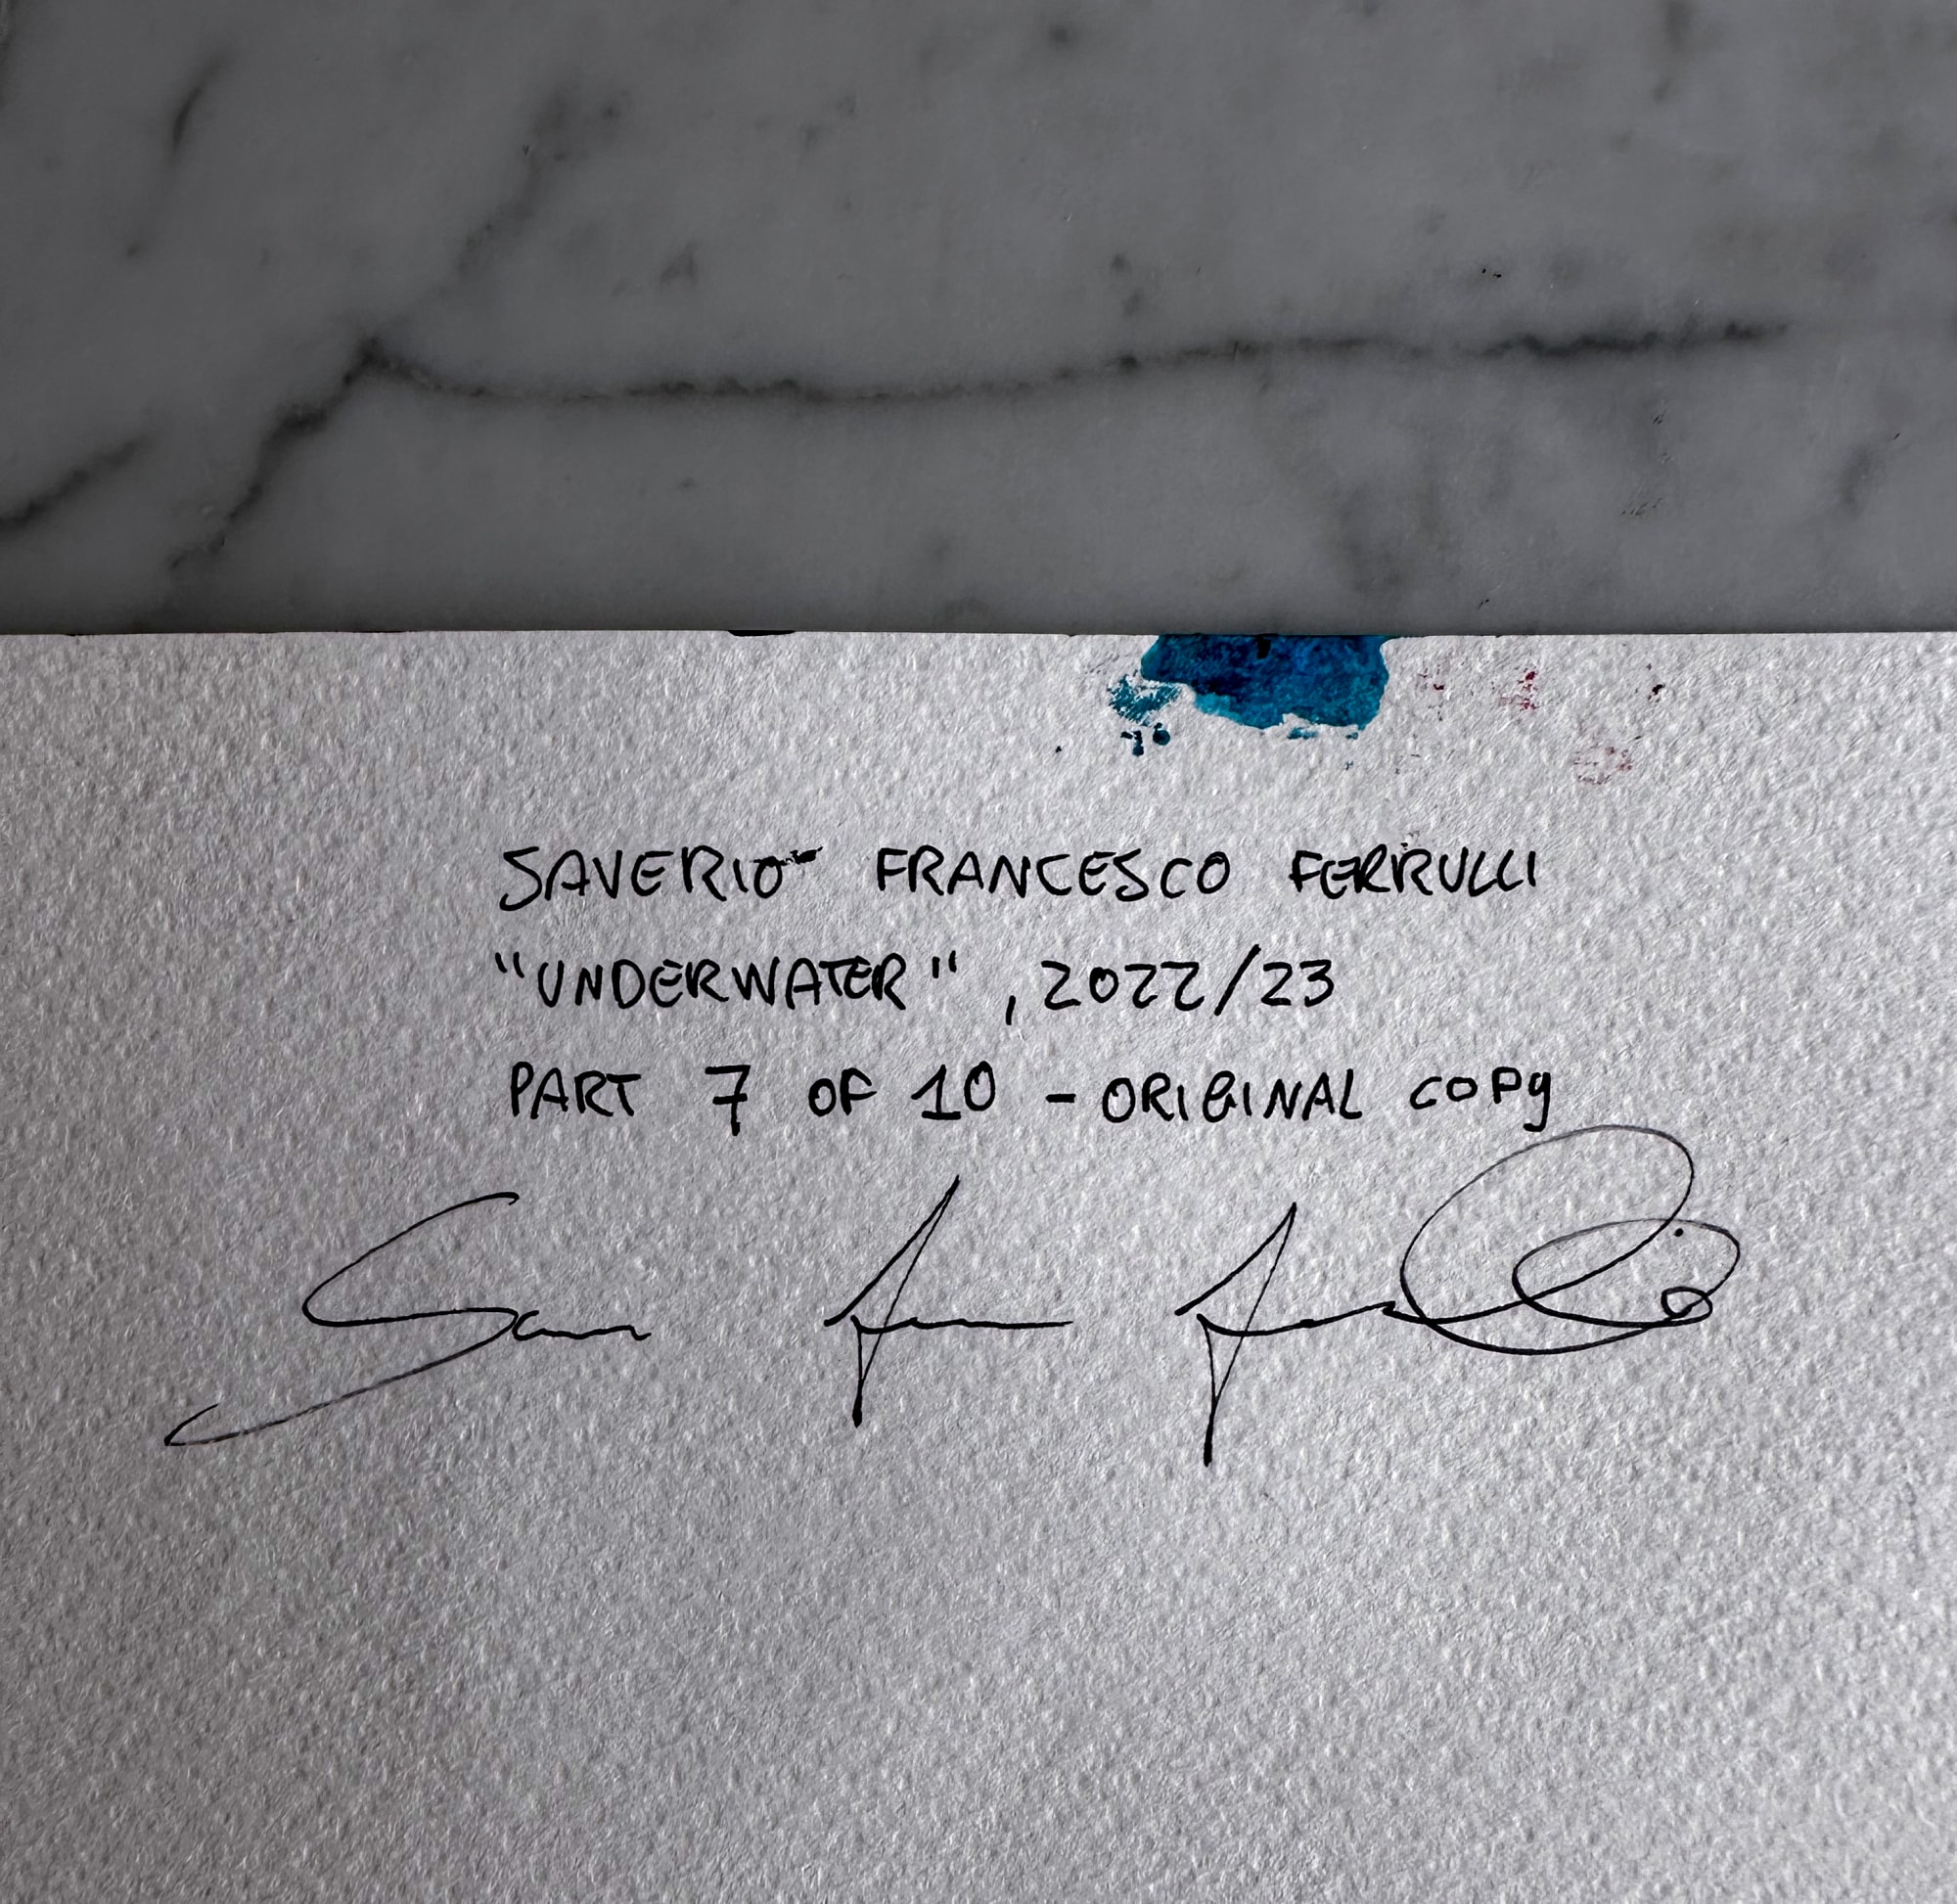 SAVERIO FRANCESCO FERRULLI
"UNDERWATER", 2022/23
PART 7 OF 10 - ORIGINAL COPY